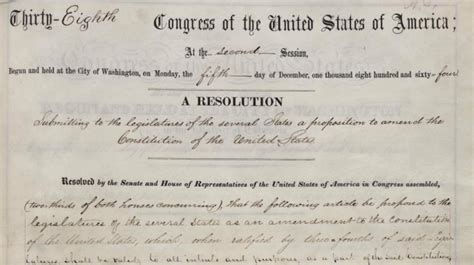 Thirty-Eighth Congress of the United States of America;
At the second Session,
Begun and held at the City of Washington, on Monday, the fifth day of December, one thousand eight hundred and sixty-four
A RESOLUTION
Submitting to the legislatures of the several States a proposition to amend the
Constitution of the United States
Resolved by the Senate and House of Representatives of the United States of America in Congress assembled,
(two thirds of both houses concurring), that the following article be proposed to the
legislatures of the several states as an amendment to the constitution
of the United States, which, when ratified by three-fourths of said
shall be valid, to all intents and purposes, as a part of the said Constitution